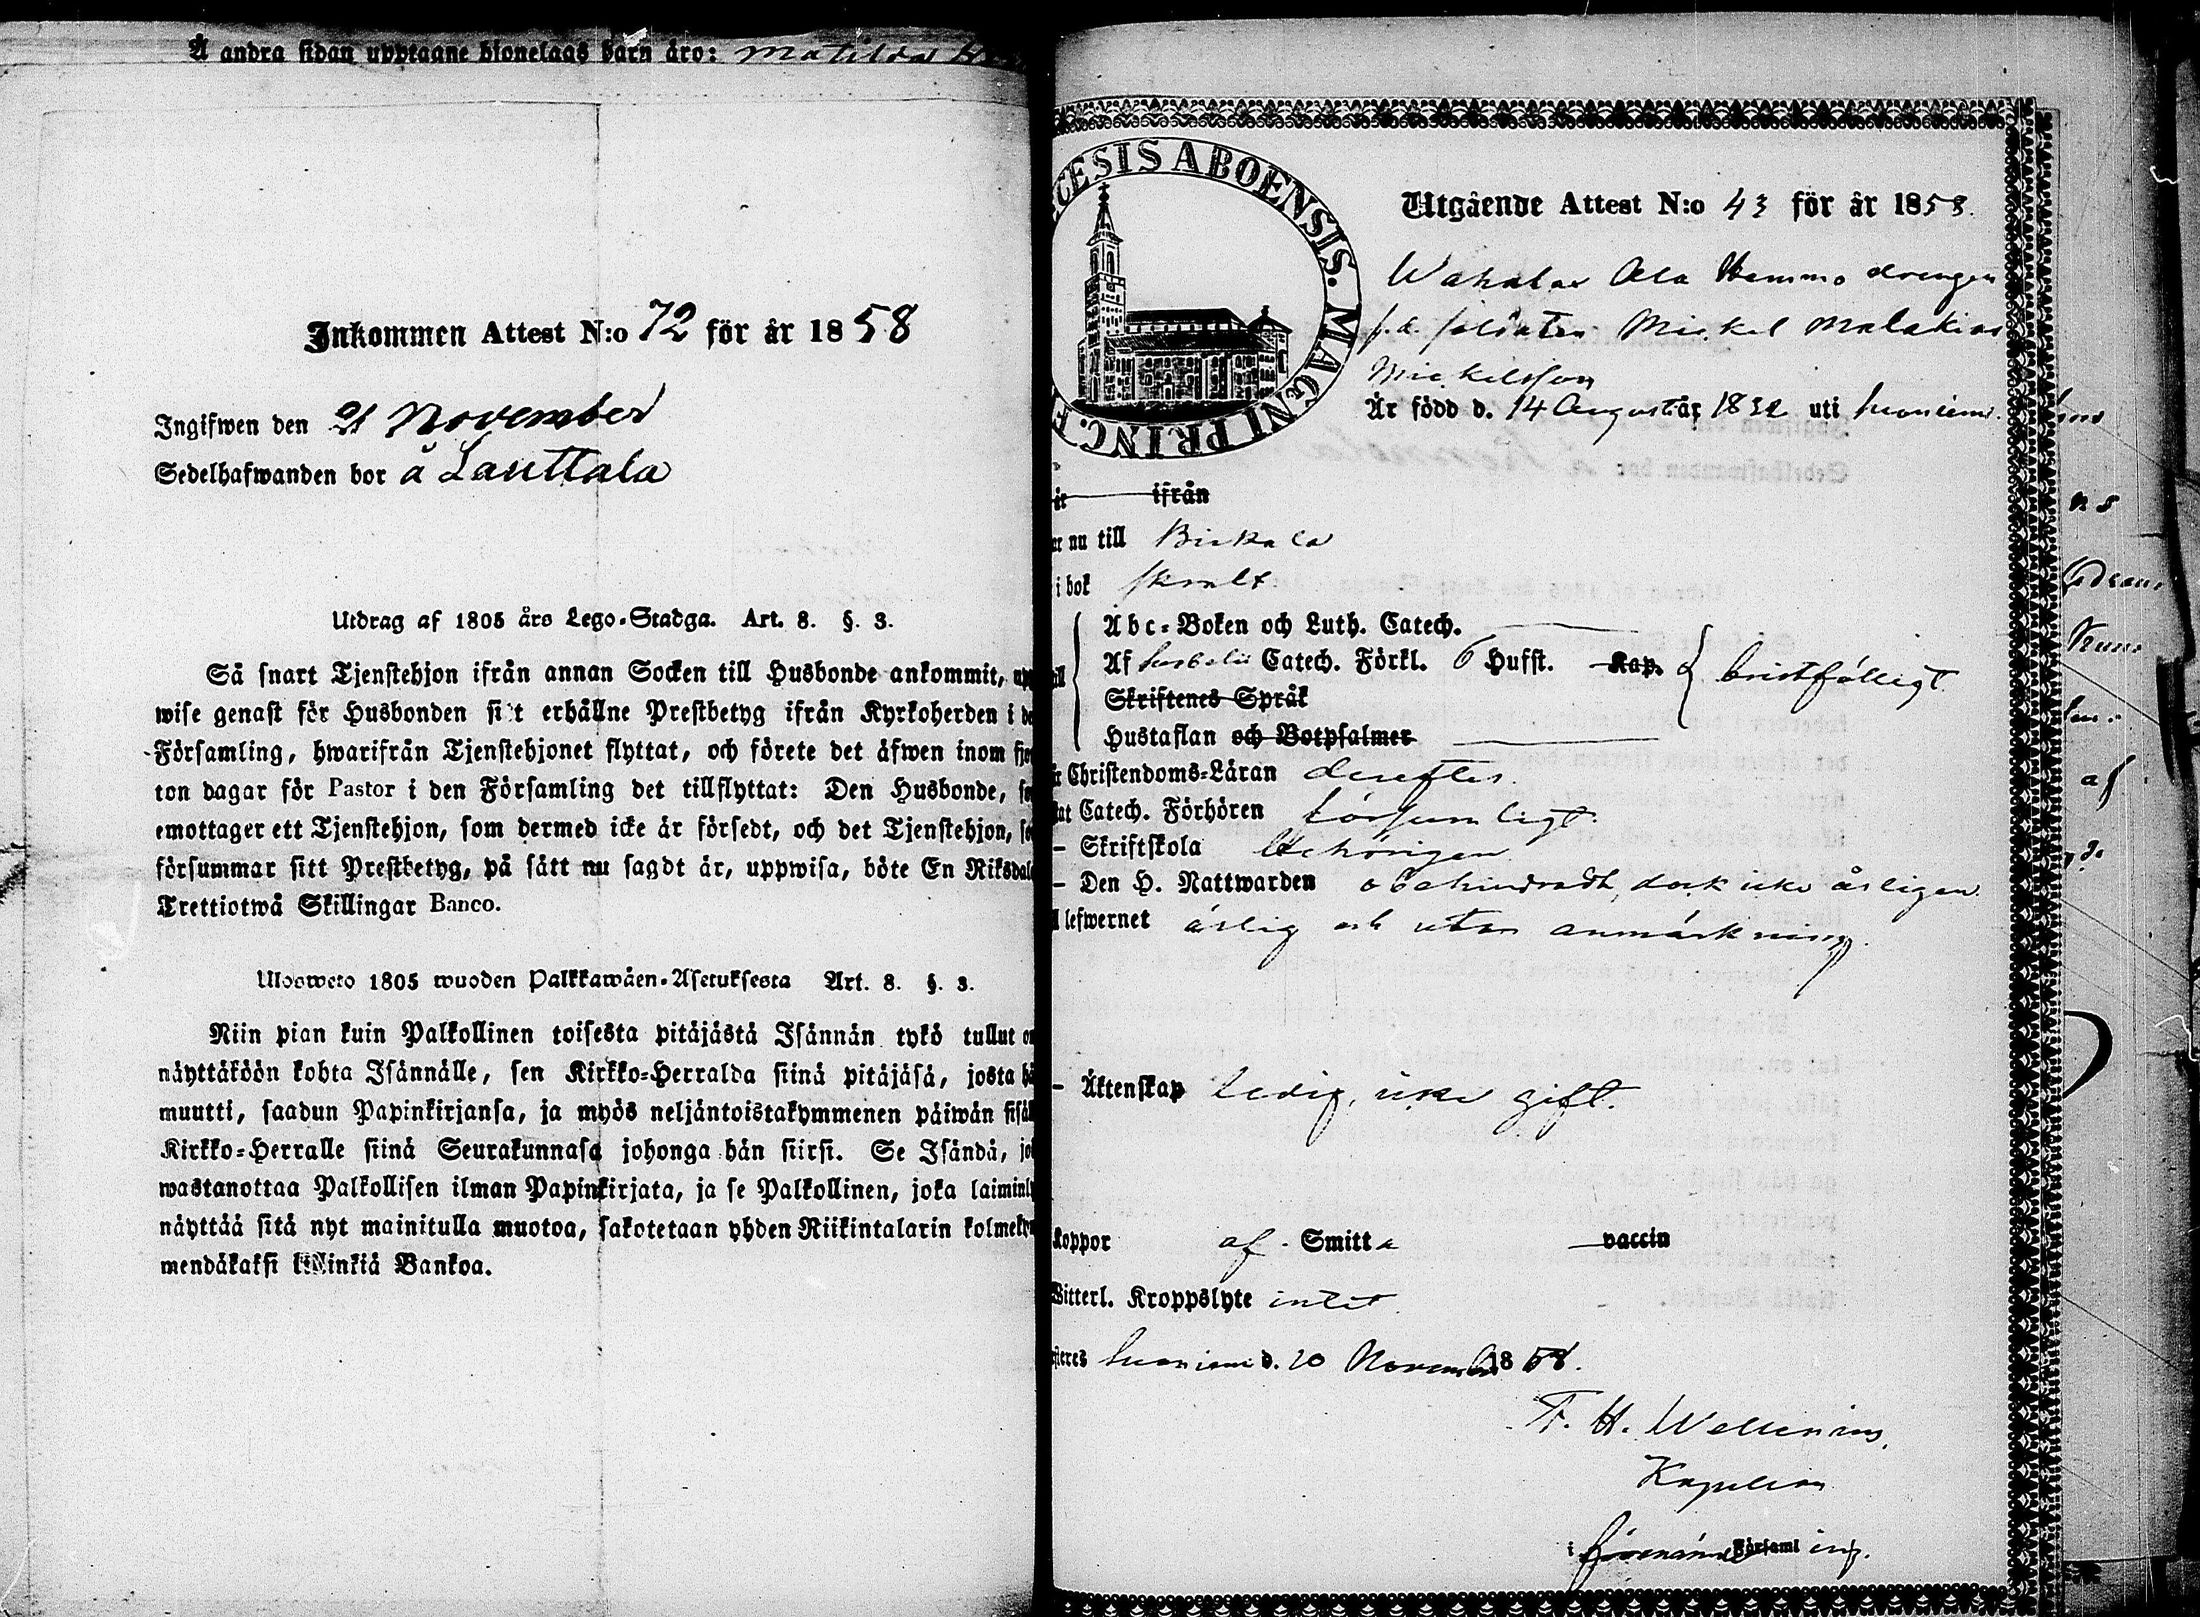 Å andra sidan upptagne hjonelags barn äro: Matilda
Inkommen Attest N:o 72 för år 1858
Ingifwen den 21 November
Sedelhafwanden bor å Lauttala
Utdrag af 1805 års Lego-Stadga. Art. 8. §. 3.
Så snart Tjenstehjon ifrån annan Socken till Husbonde ankommit, upp
wise genast för Husbonden sitt erhållne Prestbetyg ifrån Kyrkoherden i de
Församling, hwarifrån Tjenstehjonet flyttat, och förete det äfwen inom fjor
ton dagar för Pastor i den Församling det tillflyttat: Den Husbonde, so
emottager ett Tjenstehjon, som dermed icke är försedt, och det Tjenstehjon, so
försummar sitt Prestbetyg, på sätt nu sagdt är, uppwisa, böte En Riksdale
Trettiotwå Skillingar Banco.
Ulosweto 1805 wuoden Palkkawäen-Asetuksesta Art. 8. §. 3.
Niin pian kuin Palkollinen toisesta pitäjästä Isännän tykö tullut on
näyttäköön kohta Isännälle, sen Kirkko-Herralda siinä pitäjäsä, josta hä
muutti, saadun Papinkirjansa, ja myös neljäntoistakymmenen päiwän sisäl
Kirkko-Herralle siinä Seurakunnasa johonga hän siirsi. Se Isändä, jo
wastanottaa Palkollisen ilman Papinkirjata, ja se Palkollinen, joka laiminly
näyttää sitä nyt mainitulla muotoa, sakotetaan yhden Riikintalarin kolmeky
mendäkaksi killinkiä Bankoa.
CESIS ABOENSIS. MAGNI PRINC. F
Utgående Attest N:o 43 för år 1858.
Wahalax Ala Hemmo drengen
f.d. soldaten Mickel Malakias
Mickelsson
Är född d. 14 August år 1832 uti Suoniemi
år ifrån
ar nu till Birkala
i bok skralt
Abc-Boken och Luth. Catech.
Af Svebelii Catech. Förkl. 6 Hufst. Kap.
bristfälligt
Skriftenes Språk
Hustaflan och Botpsalmer
Christendoms-Läran derefter
Catech. Förhören försumligt.
– Skriftskola behörigen
– Den H. Nattwarden obehindradt, dock icke årligen
lefwernet ärlig och utan anmärkning.
– Äktenskap Ledig, icke gift.
koppor af Smitta vaccin
Witterl. Kroppslyte intet
steres Suoniemi d. 20 November 1858.
F. H. Wallenius,
Kapellan
i församl ing.